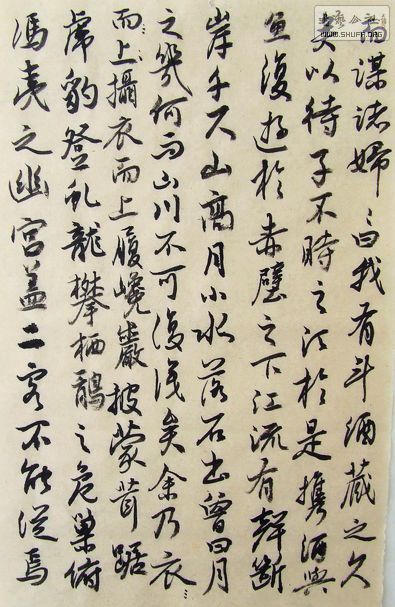 而謀諸婦〻曰我有斗酒藏之久
矣以待子不時之須於是攜酒與
魚復遊於赤壁之下江流有聲斷
岸千尺山高月小水落石出曾日月
之幾何而山川不可復識矣余乃衣
而上攝衣而上履巉巖披蒙茸踞
虎豹登虬龍攀栖鶻之危巢俯
馮夷之幽宮蓋二客不能從焉